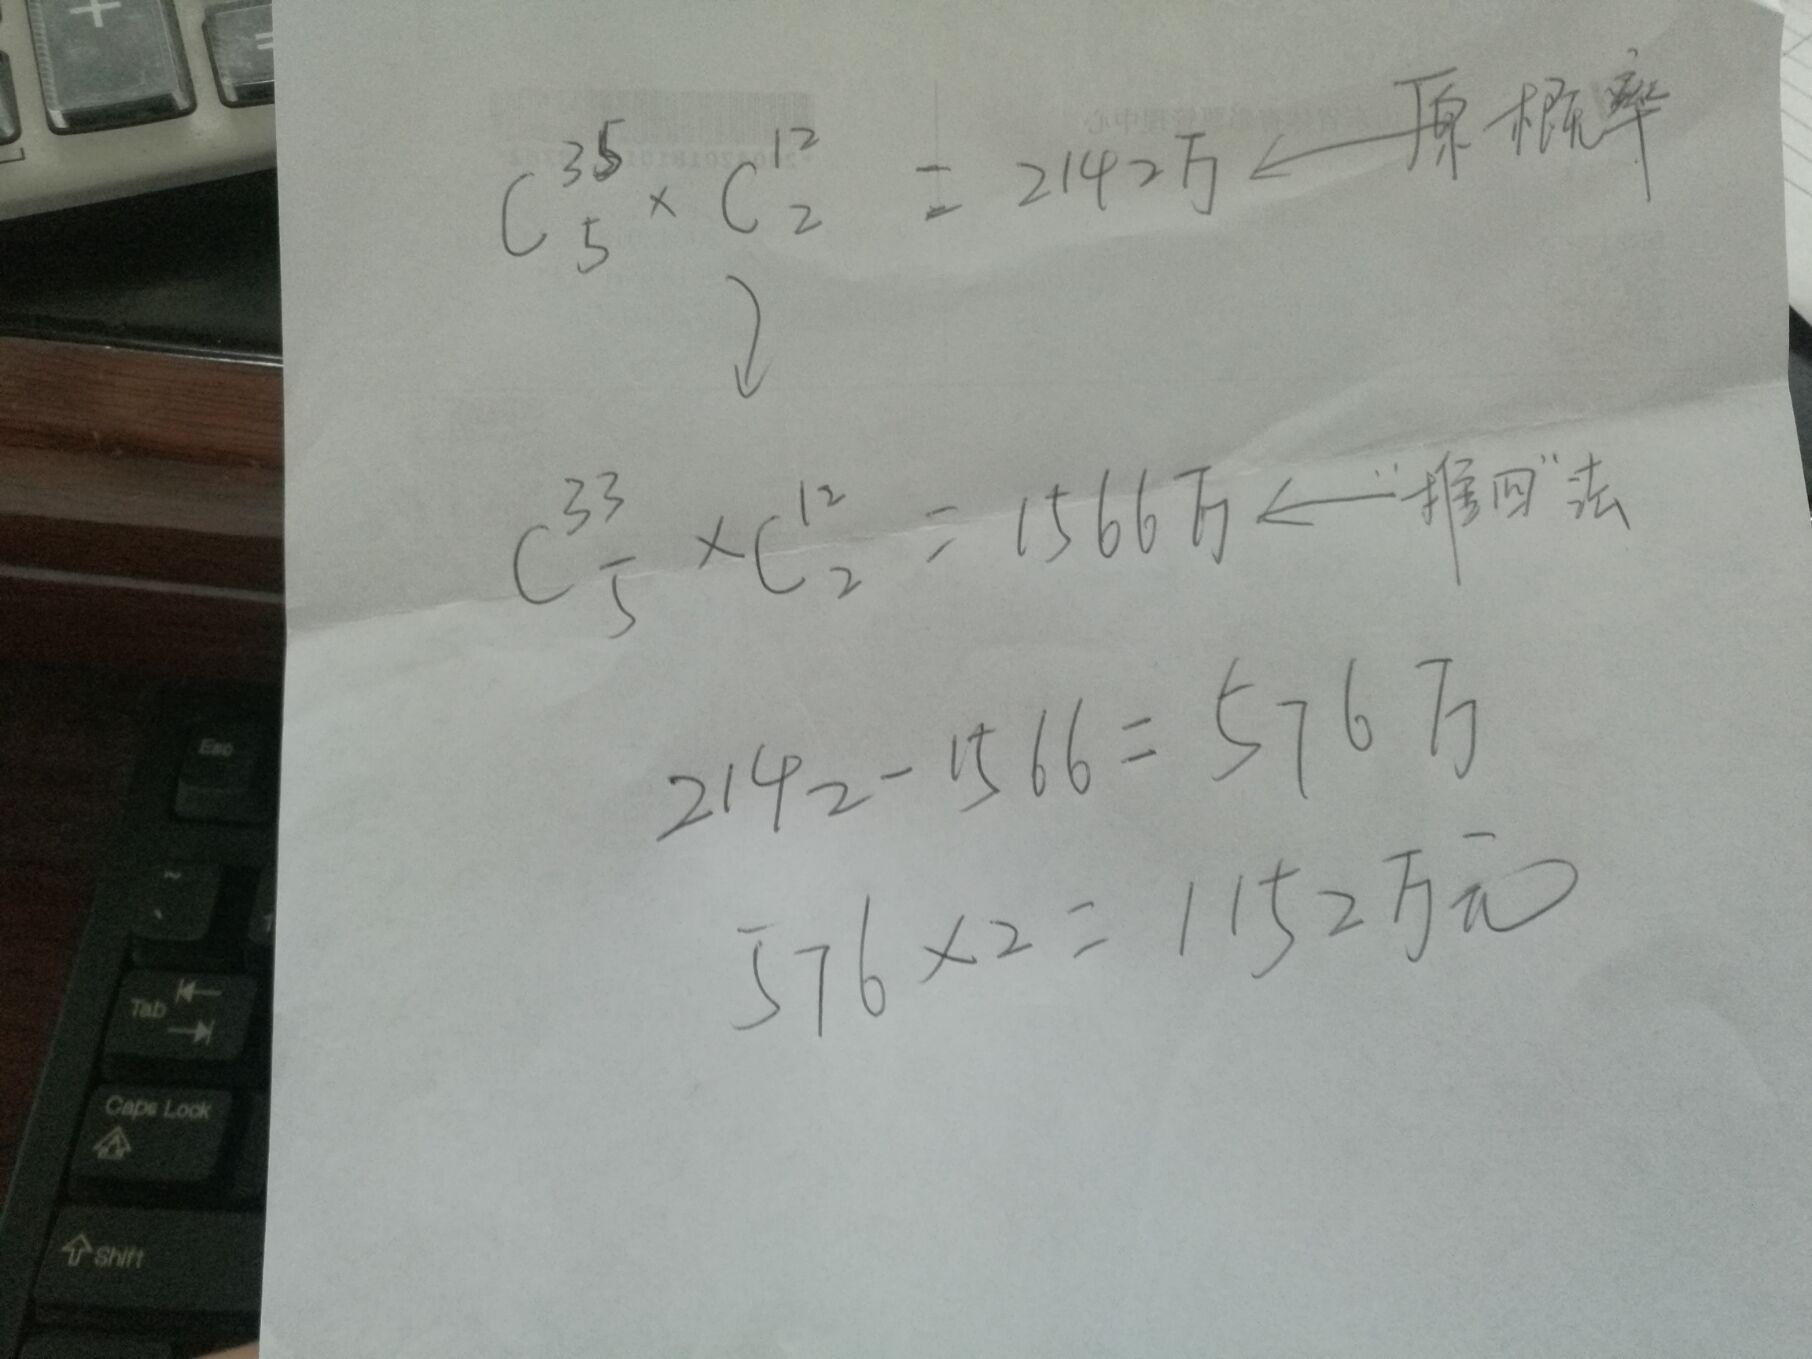 +
=
C 35 5 × C 12 2 = 2142万 ← 原概率
C 33 5 × C 12 2 = 1566万 ← "推回"法
2142-1566=576万
576×2=1152万元
Esc
~
Tab
Caps Lock
Shift